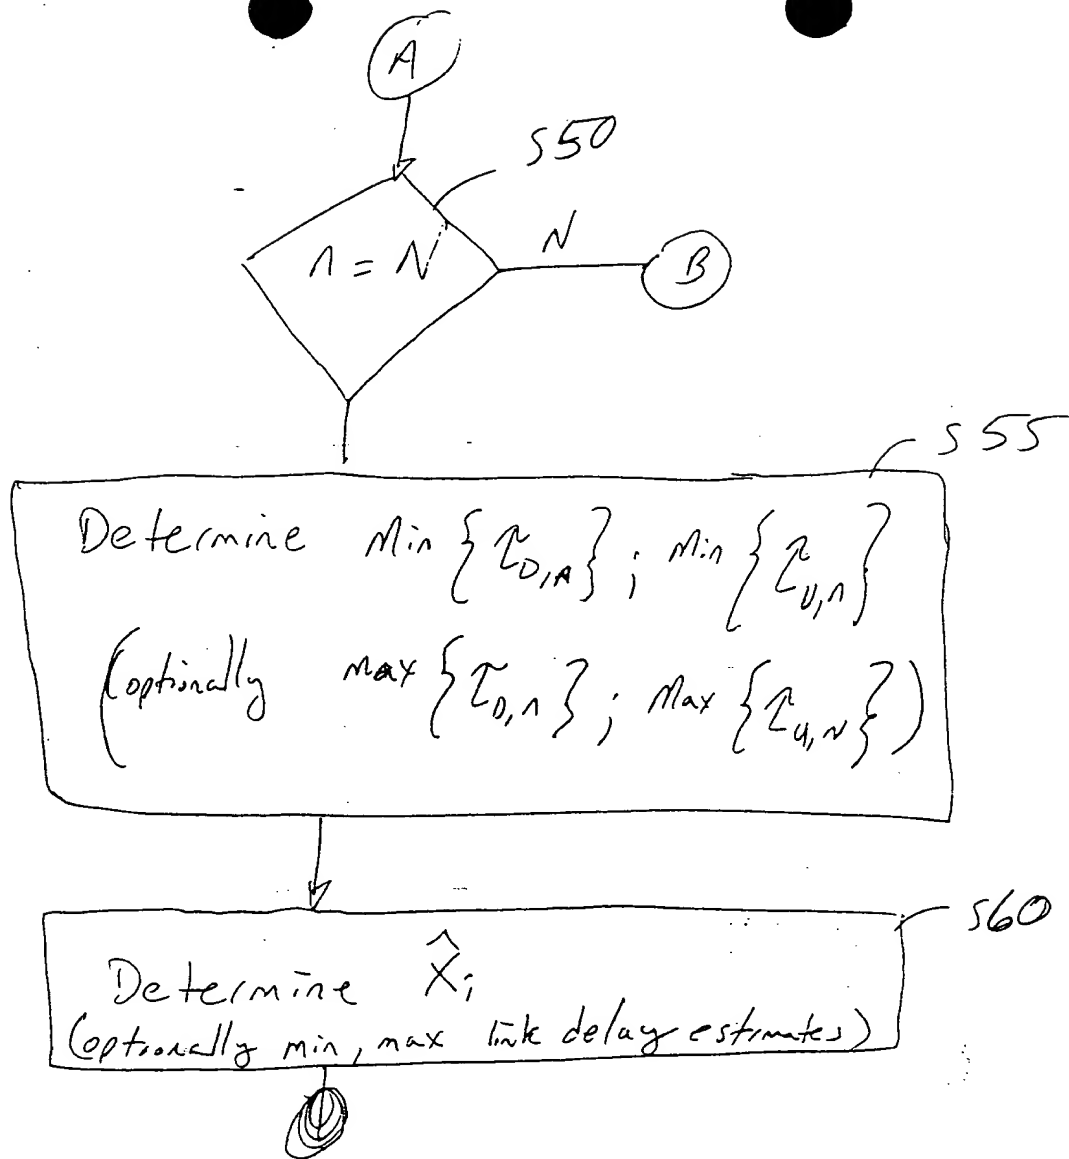 A
S50
n = N
N
B
S55
Determine Min {τ_D,n} ; Min {τ_U,n}
(optionally max {τ_D,n} ; Max {τ_U,N})
S60
Determine X̂i
(optionally min, max link delay estimates)